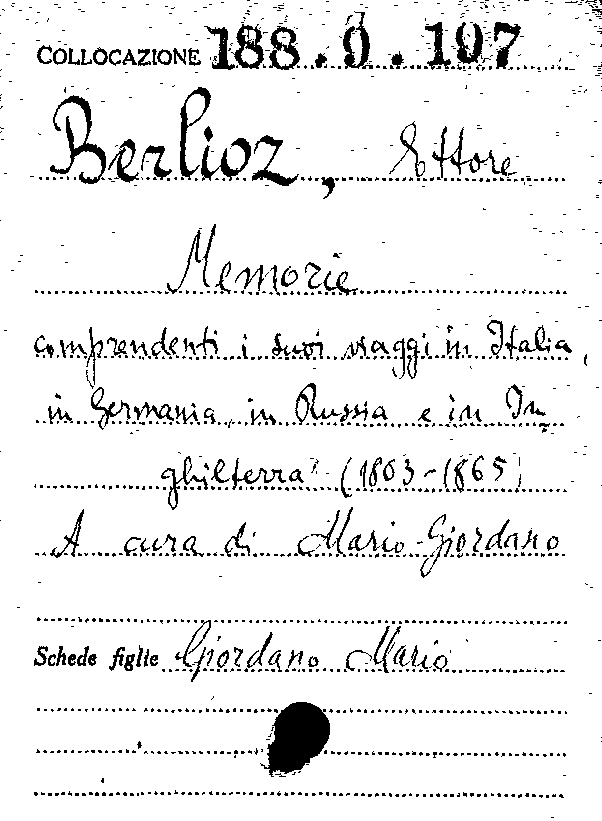 COLLOCAZIONE 188.0.107
Berlioz, Ettore
Memorie
comprendenti i suoi viaggi in Italia,
in Germania, in Russia e in In-
ghilterra (1803-1865)
A cura di Mario Giordano
Schede figlie Giordano Mario